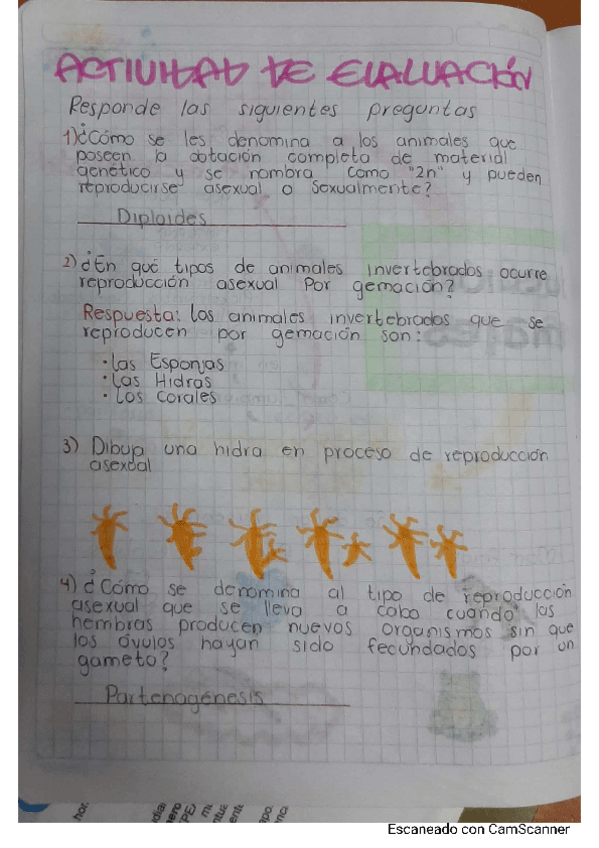 ACTIVIDAD DE EVALUACIÓN
Responde las siguientes preguntas
1) ¿Cómo se les denomina a los animales que
poseen la dotación completa de material
genético y se nombra como "2n" y pueden
reproducirse asexual o sexualmente?
Diploides
2) ¿En qué tipos de animales invertebrados ocurre
reproducción asexual por gemación?
Respuesta: Los animales invertebrados que se
reproducen por gemación son:
• Las Esponjas
• Las Hidras
• Los Corales
3) Dibuja una hidra en proceso de reproducción
asexual
4) ¿Cómo se denomina al tipo de reproducción
asexual que se lleva a cabo cuando las
hembras producen nuevos organismos sin que
los óvulos hayan sido fecundados por un
gameto?
Partenogénesis
Escaneado con CamScanner